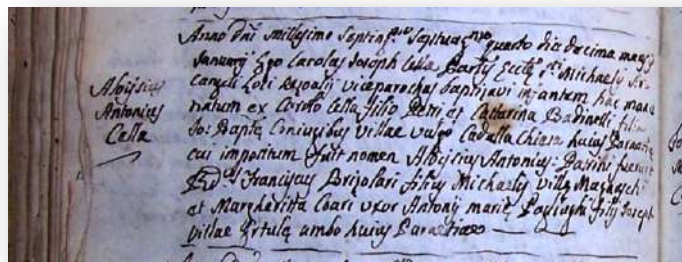 Aloijsius
Antonius
Cella
Anno dni millesimo septing.mo septuag.mo quarto die decima mensis
Januarij Ego Carolus Joseph Cella Ecctę S.ti Michaelis Ar-
cangeli loci viceparochus baptizavi infantem hac mane
natum ex Cella filio Petri et Catharina Badinelli filia
Jo: Baptę Coniugibus villae vulgo Ca della Chiesa huius Paraeciae
cui impositum fuit nomen Aloijsius Antonius: Patrini fuerunt
Franciscus Brizolari filius Michaelis villę
et Margheritta uxor Antonij Marię filij Joseph
villae ambo huius Paraeciae